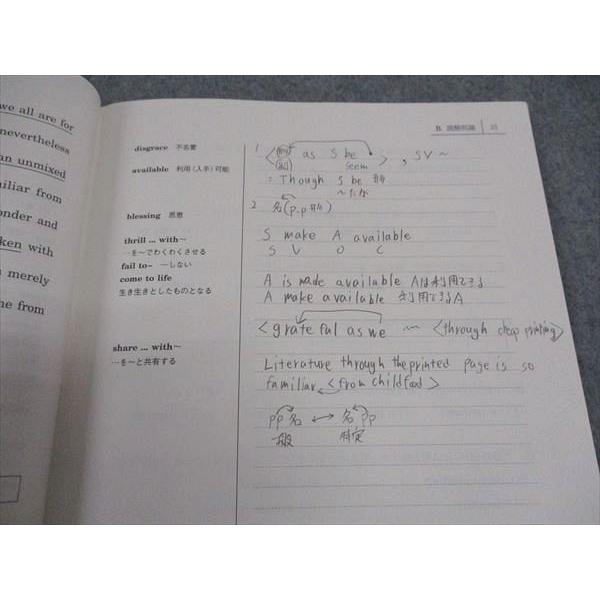 we all are for
nevertheless
an unmixed
iliar from
onder and
ken with
merely
ne from
B 読解問題
disgrace 不名誉
available 利用(入手)可能
blessing 恩恵
thrill ... with~
…を~でわくわくさせる
fail to– —しない
come to life
生き生きとしたものとなる
share ... with~
…を~と共有する
1.
as S be , SV~
seem
= Though S be
2. 名(p.p
S make A available
S V O C
A is made available Aは利用できる
A make available 利用できるA
<grateful as we ~ <through cheap printing>
Literature through the printed page is so
familiar <from childfood>
pp名 ↔ 名pp
一般 特定